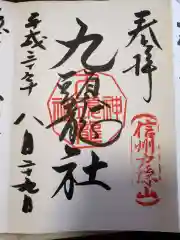 奉拝
信州戸隠山
九頭龍社
平成三十年
八月二十九日